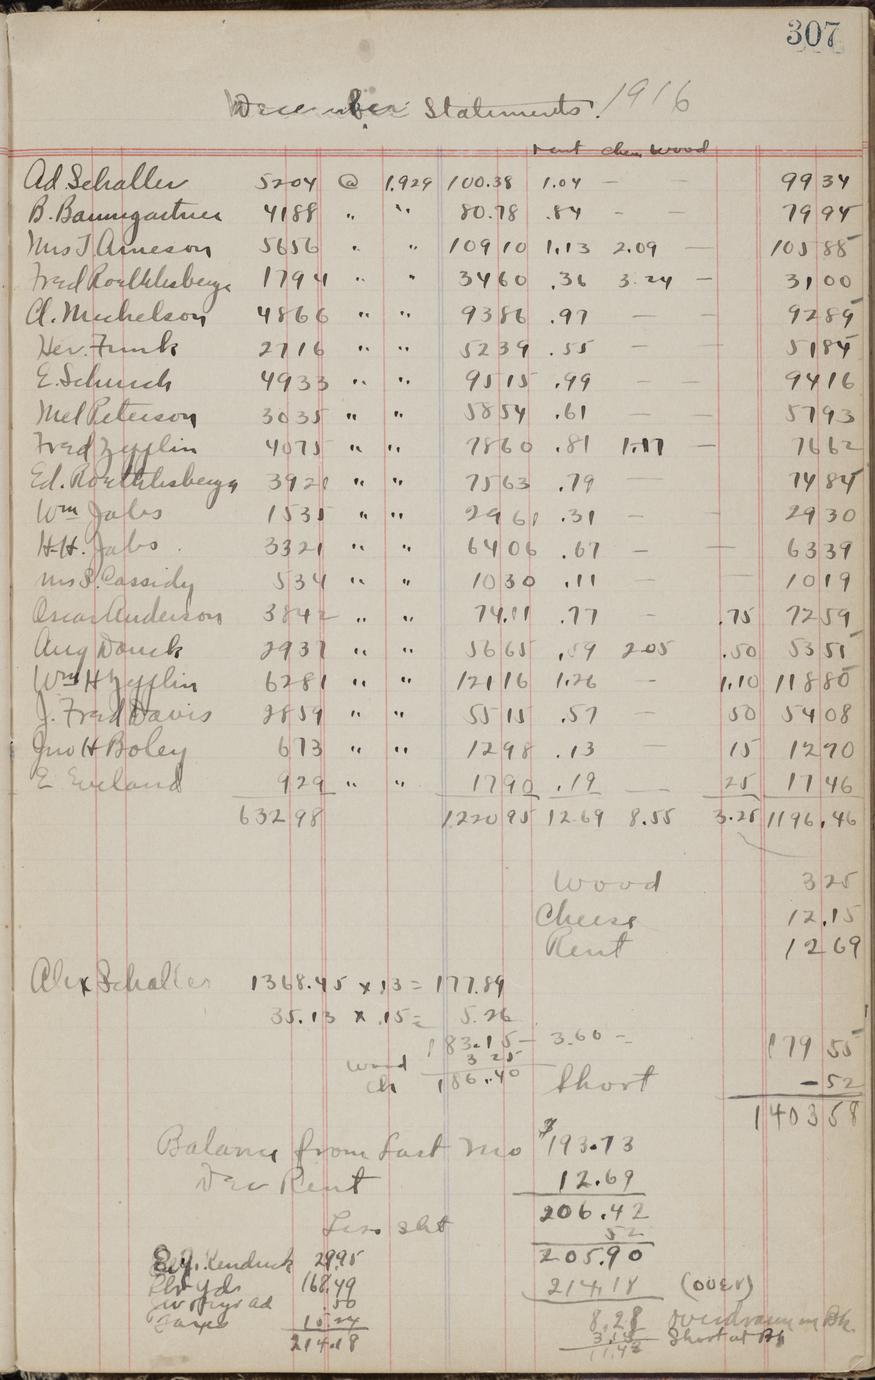 307
December Statements. 1916
rent chee wood
Ad. Schaller 5204 @ 1.929 100.38 1.04 - - 99 34
B. Baumgartner 4188 " " 80.78 .84 - - 79 94
Mrs J. Arneson 5656 " " 109 10 1.13 2.09 - 105 88
Fred Roethlisberge 1794 " " 34 60 .36 3.24 - 31 00
A. Michelson 4866 " " 93 86 .97 - - 92 89
Her. Funk 2716 " " 52 39 .55 - - 51 84
E. Schurch 4933 " " 95 15 .99 - - 94 16
Mel Peterson 3035 " " 58 54 .61 - - 57 93
Fred Zyfflin 4075 " " 78 60 .81 1.17 - 76 62
Ed. Roethlisberge 3921 " " 75 63 .79 - 74 84
Wm Jabs 1535 " " 29 61 .31 - - 29 30
H.H. Jabs . 3321 " " 64 06 .67 - - 63 39
Mrs P. Cassidy 534 " " 10 30 .11 - - 10 19
Oscar Anderson 3842 " " 74.11 .77 - .75 72 59
Aug Donck 2937 " " 56 65 .59 2.05 .50 53 51
Wm H Zyfflin 6281 " " 121 16 1.26 - 1.10 118 80
J. Fred Davis 2859 " " 55 15 .57 - 50 54 08
Jno H Boley 673 " " 12 98 .13 - 15 12 70
E Eveland 929 " " 17 90 .19 - 25 17 46
63298 1220 95 12 69 8.55 3.25 1196.46
Wood 3 25
Cheese 12.15
Rent 12 69
Alex Schaller 1368.45 x 13 = 177.89
35.13 x .15 = 5.26
183.15 - 3.60 = 179 55
wood 3 25
Ch 186.40 Short - 52
1403 58
Balance from Last Mo $193.73
Dec Rent 12.69
206.42
Less sht 52
205.90
Kenduck 29.95
168.49 214.18 (over)
ad .50
Taxes 15.24 8.28 Overdrawn in Bk.
214.18 3.15 Short at Bk
11.43